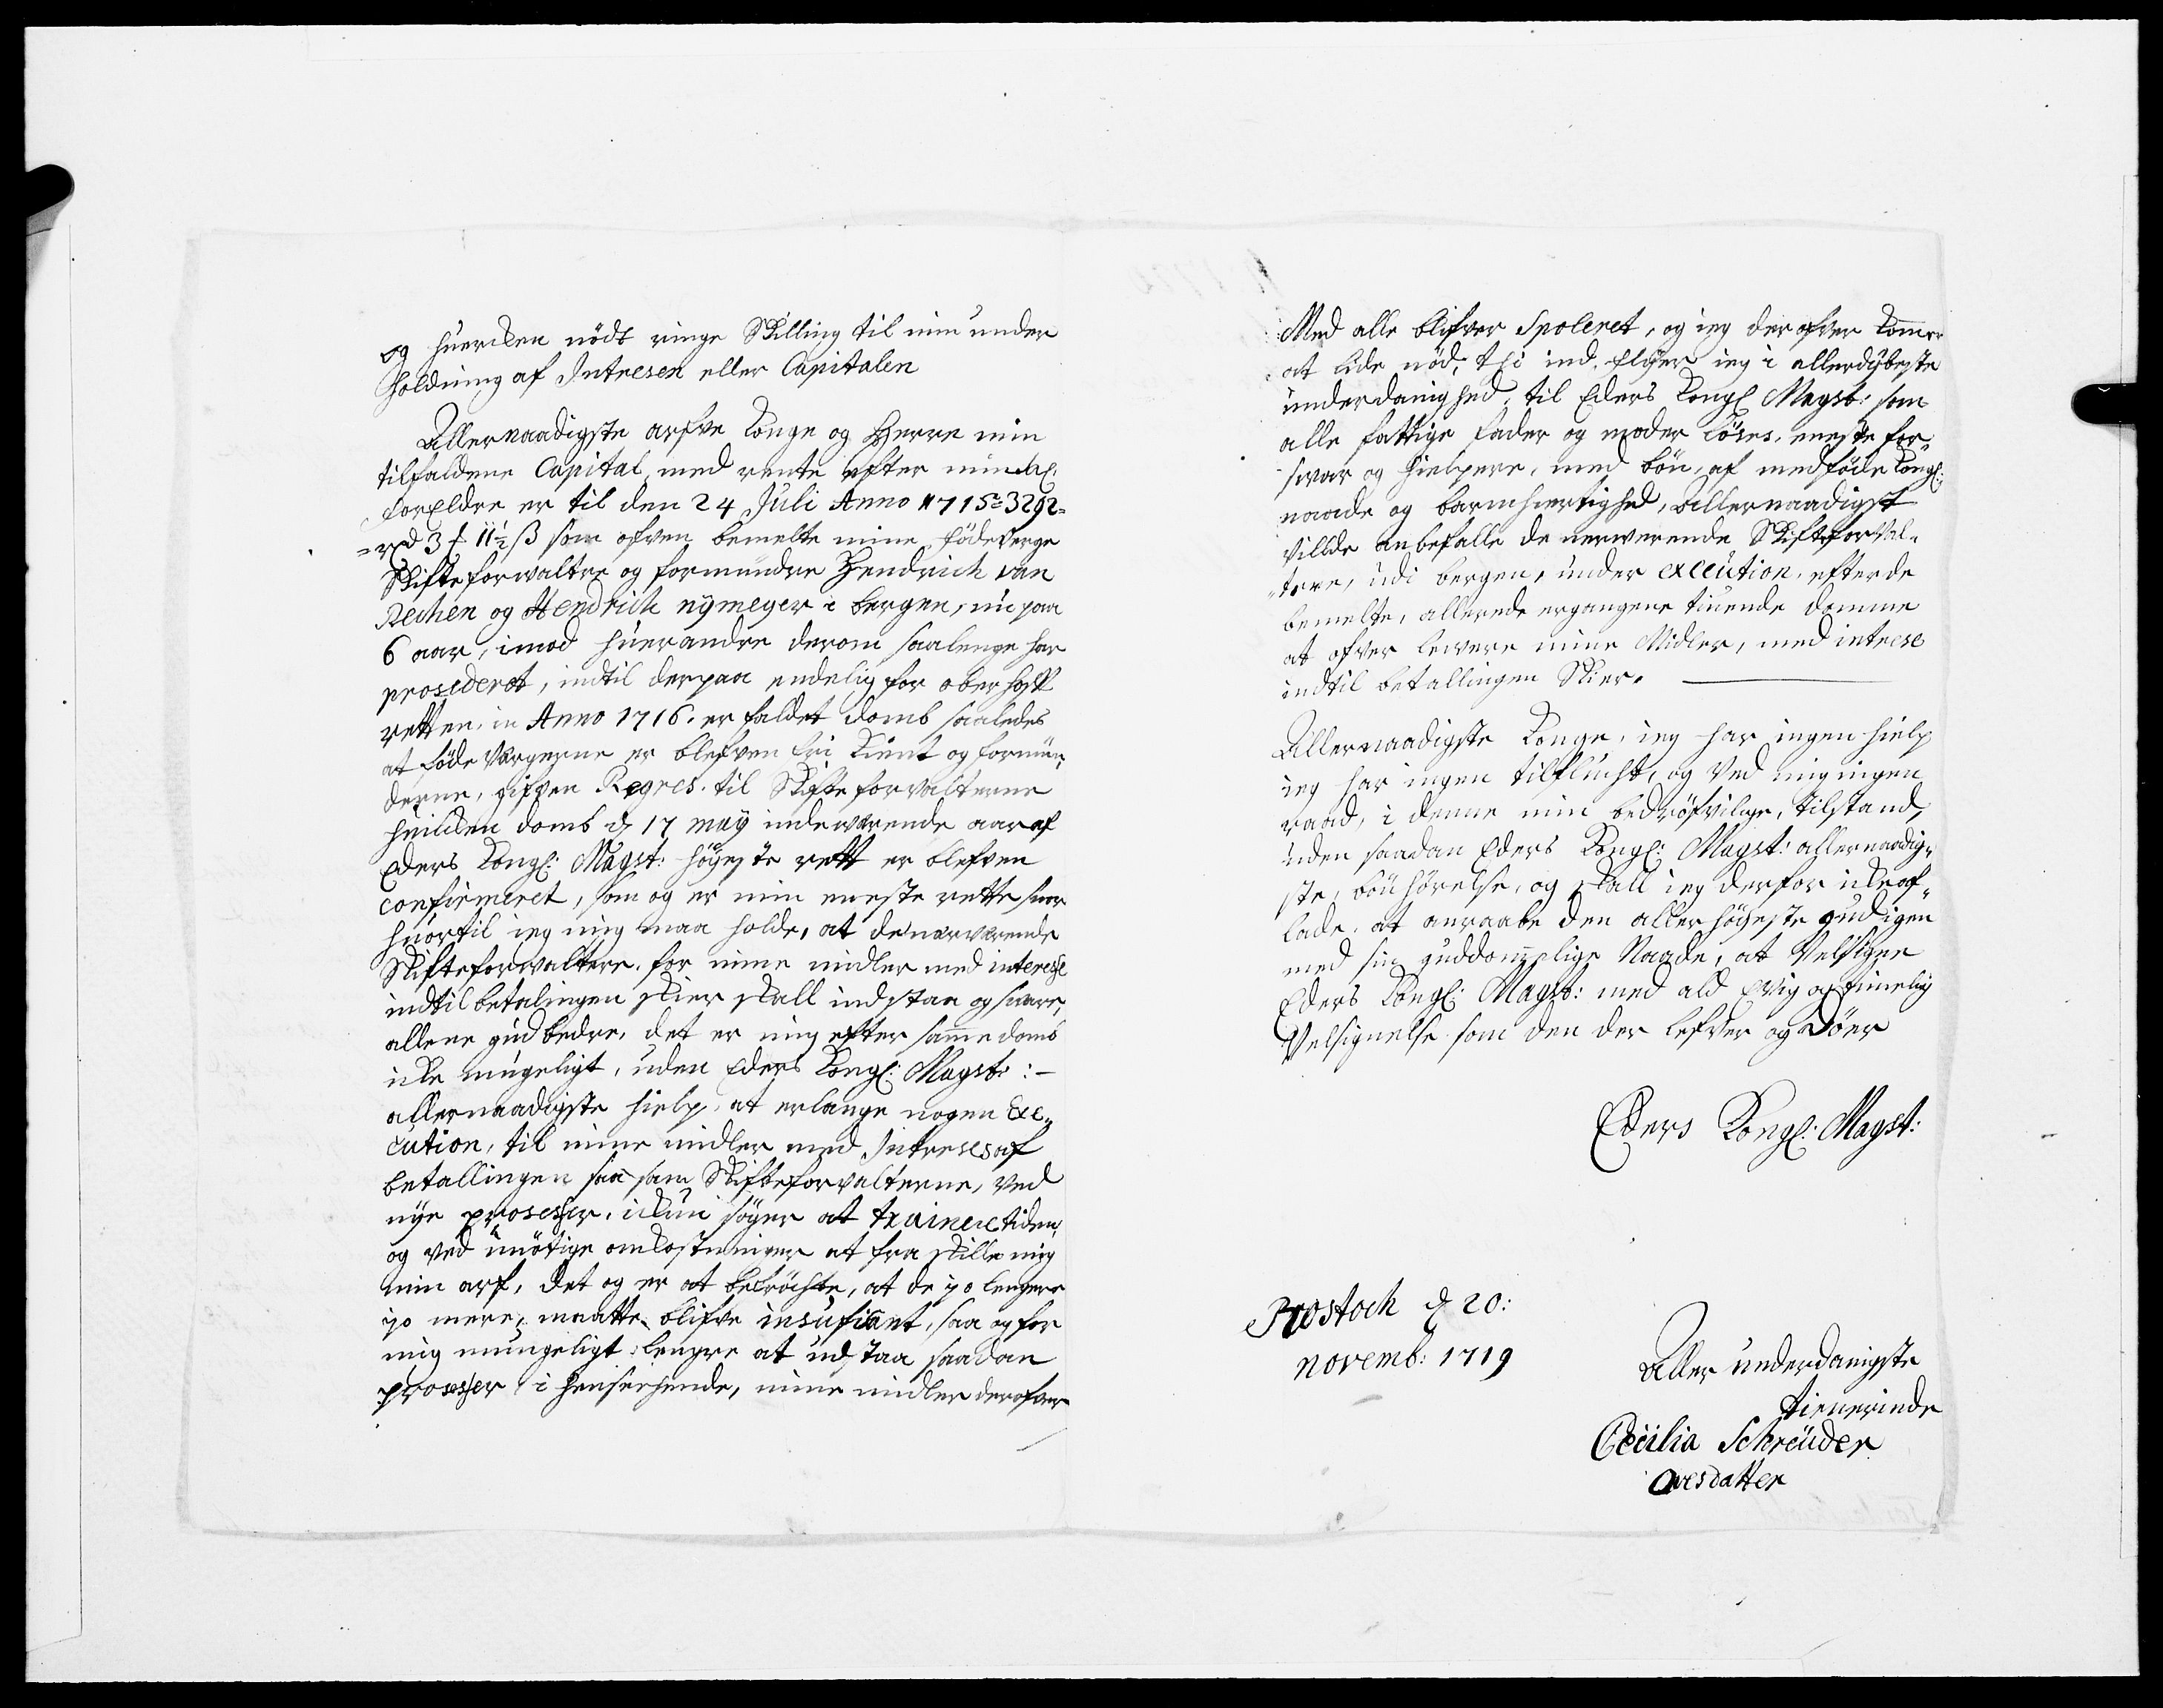 og huercken nödt ringe Skilling til min under
holdning af Intresen eller Capitalen
Allernaadigste arfve Konge og Herre min
tilfaldene Capital med rente efter min Sal:
forEldre er til den 24 Juli Anno 1715 = 3292 =
= rd 3 f 11½ ß som ofven bemelte mine föde Verge
Skifteforwaltre og formundre Hendrich van
Rechen og Hendrich nÿmeyer i bergen, nu paa
6 aar, imod huerandre derom saalenge har
prosederet, indtil derpaa endelig for oberhoff
retten in Anno 1716. er faldet domb saaledes
at föde Vergerne er blefven fri Kient og formün,
derne, gifven Regres. til Skifteforvalterne
huilcken domb d 17 maÿ indeværende aar af
Eders Kongl: Mayst: höyeste rett er blefven
confirmeret, som og er min eneste rettesnor
huortil ieg mig maa holde, at de nærværende
Skifteforwaltere. for mine midler med interesse
indtil betalingen skier skall indstaa og svare,
allene gud bedre, det er mig efter samme domb
icke mügeligt, uden Eders Kongl: Mayst: :-
allernaadigste hielp. at erlange nogen Exe„
cution, til mine midler med Intreses af
betallingen saa som Skifteforvalterne, ved
nye prosesser. ickun söger at trainere tiden,
og ved unötige omkostninger at fra skille mig
min arf, det og er at befröchte, at de jo lengere
jo mere, maatte blifve insufisant, saa og for
mig umugeligt lengre at udstaa saadan
prosesser i henseehende, mine midler derofver
Med alle blifver Spoleret, og ieg der ofver kommer
at lide nöd, thi ind flÿer ieg i allerdÿbeste
underdanighed, til Eders Kongl Mayst: som
alle fattige fader og moder löses, eneste for„
svar og hielpere, med bön, af medföde Kongl:
naade og barmhiertighed, allernaadigst
villde anbefalle de nerwerende Skifteforval„
„tere, udi bergen, under execution, efter de
bemelte, allerede ergangene tuende domme
at ofver levere mine Midler, med intrese
indtil betallingen Skier.
Allernaadigste Konge, ieg har ingen hielp
ieg har ingen tilflucht, og Ved mig ingen
raad, i denne min bedröfvilige, tilstand,
uden saadan Eders Kongl: Mayst: allernaadig„
ste, bön hörelse, og skall ieg derfor icke af„
lade, at anraabe den aller höyeste gud igen
med sin guddommelige Naade, at Velsigne
Eders Kongl: Mayst: med ald Evig og timelig
Velsignelse som den der lefver og döer
Eders Kongl: Mayst:
Rostoch d 20:
novemb: 1719
Aller underdanigste
tienerinde
Cecilia Schreüder
Ovesdatter